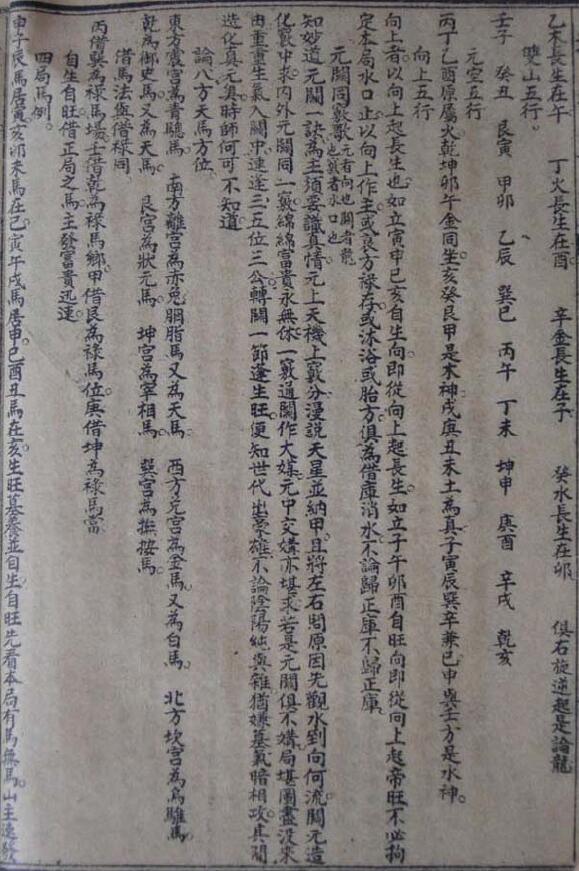 乙木長生在午　丁火長生在酉　辛金長生在子　癸水長生在卯　俱右旋逆起是論龍
雙山五行。
壬子　癸丑　艮寅　甲卯　乙辰　巽巳　丙午　丁未　坤申　庚酉　辛戌　乾亥
元空五行
丙丁乙酉原屬火乾坤卯午金同生亥癸艮甲是木神戌庚丑未土為真子寅辰巽辛兼巳申與壬方是水神。
向上五行
向上者以向上起長生也如立寅申巳亥自生向即從向上起長生如立子午卯酉自旺向即從向上起帝旺不必拘
定本局水口止以向上作主或良方祿存或沐浴或胎方俱為借庫消水不論歸正庫不歸正庫
元關同竅歌元者向也關者龍也竅者水口也
知妙道元關一訣為主須要識真情元上天機上竅分漫說天星並納甲且將左右問原因先觀水到向何流關元造
化竅中求內外元關同一竅綿綿富貴永無休一竅通關作大媒元中交媾亦堪求若是元關俱不媾局堪圖盡沒來
由重重生氣入關中速逢三五位三公轉關一節逢生旺便知世代出豪雄不論陰陽純與雜猶嫌墓氣暗相攻其間
造化真元奧時師何可不知道
論八方天馬方位
東方震宮為青驄馬　南方離宮為赤兔胭脂馬又為天馬　西方兌宮為金馬又為白馬　北方坎宮為烏騅馬
乾為御史馬又為天馬　艮宮為狀元馬　坤宮為宰相馬　巽宮為撫按馬
借馬法與借祿同
丙借巽為祿馬壬借乾為祿馬鄉甲借艮為祿馬位庚借坤為祿馬當
自生自旺借正局之馬主發富貴迅速
四局馬例。
申子辰馬居寅亥卯未馬在巳寅午戌馬居申巳酉丑馬在亥生旺墓養並自生自旺先看本局有馬無馬山主速發